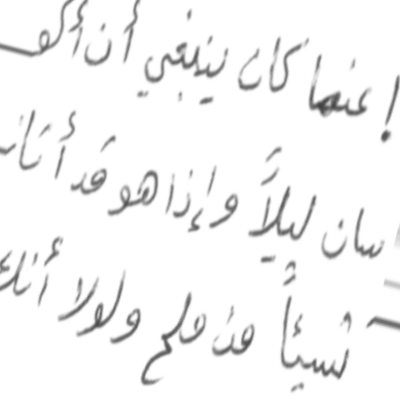 ! عنهما كان ينبغي أن أكو
سان ليلاً وإذا هو قد أتانـ
شيئاً من ملح ولولا أنك